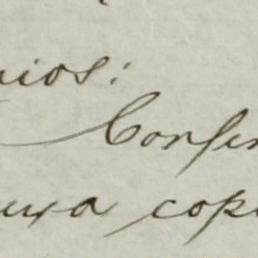 nios:
Confer
uya copi